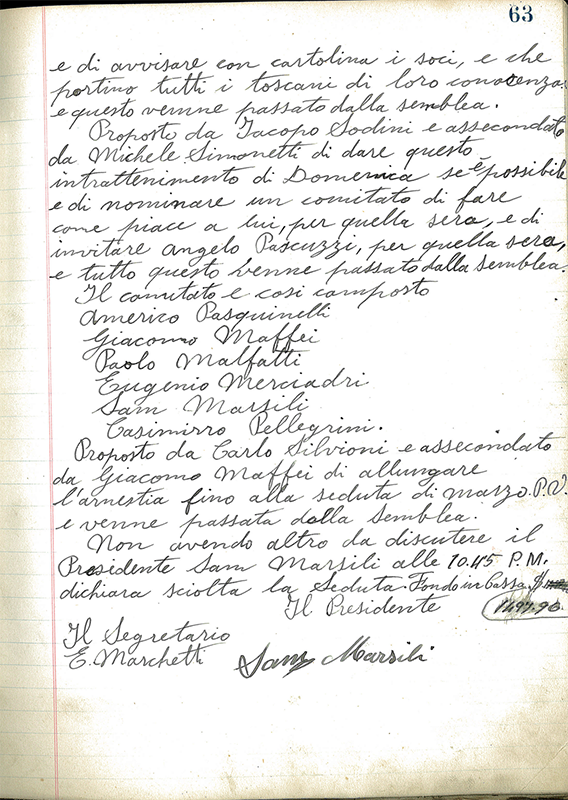 63
e di avvisare con cartolina i soci, e che
portino tutti i toscani di loro conocenza
e questo vennne passato dalla semblea.
Proposto da Iacopo Sodini e assecondato
da Michele Simonetti di dare questo
intrattenimento di Domenica se è possibile
e di nominare un comitato di fare
come piace a lui, per quella sera, e di
invitare Angelo Pascuzzi, per quella sera,
e tutto questo venne passato dalla semblea.
Il comitato e cosi composto
Americo Pasquinelli
Giacomo Maffei
Paolo Malfatti
Eugenio Merciadri
Sam Marsili
Casimirro Pellegrini.
Proposto da Carlo Silvioni e assecondato
da Giacomo Maffei di allungare
l'arnestia fino alla seduta di marzo. P.V.
e venne passata dalla semblea.
Non avendo altro da discutere il
Presidente Sam Marsili alle 10.45 P.M.
dichiara sciolta la Seduta. Fondo in Cassa $
Il Presidente
Il Segretario
E. Marchetti Sam Marsili